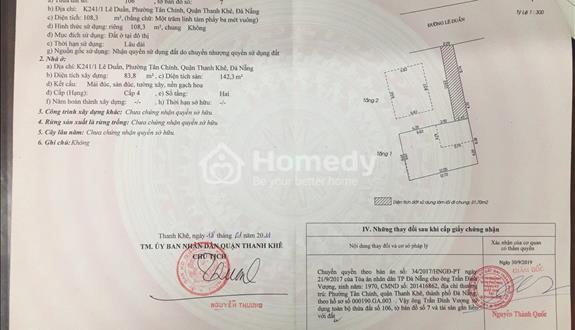 106 , tờ bản đồ số: 7
b) Địa chỉ: K241/1 Lê Duẩn, Phường Tân Chính, Quận Thanh Khê, Đà Nẵng
c) Diện tích: 108,3 m², (bằng chữ: Một trăm linh tám phẩy ba mét vuông)
d) Hình thức sử dụng: riêng 108,3 m², chung Không
đ) Mục đích sử dụng: Đất ở tại đô thị
e) Thời hạn sử dụng: Lâu dài
g) Nguồn gốc sử dụng: Nhận quyền sử dụng đất do chuyển nhượng quyền sử dụng đất
2. Nhà ở:
a) Địa chỉ: K241/1 Lê Duẩn, Phường Tân Chính, Quận Thanh Khê, Đà Nẵng
b) Diện tích xây dựng: 83,8 m², c) Diện tích sàn: 142,3 m²
d) Kết cấu: Mái đúc, sàn đúc, tường xây, nền gạch hoa
đ) Cấp (Hạng): Cấp 4 , e) Số tầng: Hai
f) Năm hoàn thành xây dựng: -/- , h) Thời hạn sở hữu: -/-
3. Công trình xây dựng khác: Chưa chứng nhận quyền sở hữu
4. Rừng sản xuất là rừng trồng: Chưa chứng nhận quyền sở hữu
5. Cây lâu năm: Chưa chứng nhận quyền sở hữu
6. Ghi chú: Không
Tỷ Lệ 1 : 300
ĐƯỜNG LÊ DUẨN
Tầng 2
Tầng 1
Diện tích đất sử dụng làm lối đi chung: 31.70m2
Homedy
Be your better home
Thanh Khê, ngày tháng 20
TM. ỦY BAN NHÂN DÂN QUẬN THANH KHÊ
CHỦ TỊCH
NGUYỄN THƯƠNG
IV. Những thay đổi sau khi cấp giấy chứng nhận
Nội dung thay đổi và cơ sở pháp lý
Xác nhận của cơ quan có thẩm quyền
Chuyển quyền theo bản án số: 34/2017/HNGĐ-PT ngày
21/9/2017 của Tòa án nhân dân TP Đà Nẵng cho Trần Đình
Vượng, sinh năm: 1970, CMND số: 201416862, địa chỉ thường
trú: Phường Tân Chính, quận Thanh Khê, thành phố Đà Nẵng;
theo hồ sơ số 000190.GA.003. Vậy ông Trần Đình Vượng sử
dụng toàn bộ thửa đất số 106, tờ bản đồ số 7 và tài sản gắn liền
với đất
Ngày 30/9/2019
GIÁM ĐỐC
Nguyễn Thành Quốc